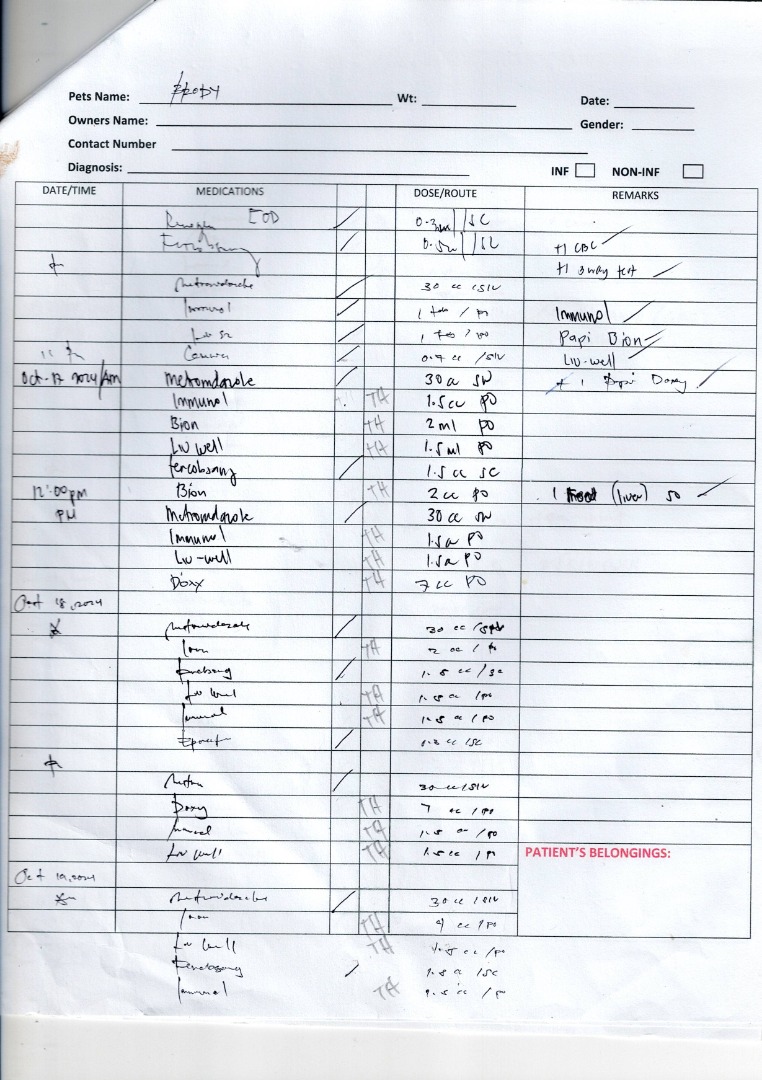 Pets Name: BRODY Wt: Date:
Owners Name: Gender:
Contact Number
Diagnosis: INF NON-INF
DATE/TIME MEDICATIONS DOSE/ROUTE REMARKS
EOD 0.3ml / SC
0.5ml / SC +1 CBC
+1 3way test
Metronidazole 30 cc / SIV
Immunol 1 tab / PO Immunol
1 tab / PO Papi Bion
/SIV Liv-well
Oct-17 2024/AM Metronidazole 30cc SIV + 1 Papi Doxy
Immunol TH 1.5cc PO
Bion TH 2 ml PO
Liv well TH 1.5ml PO
fercobsang 1.5 cc SC
12:00pm Bion TH 2 cc PO 1 (liver) 50
PM Metronidazole 30 cc SIV
Immunol TH 1.5cc PO
Liv-well TH 1.5cc PO
Doxy TH 7 cc PO
Oct 18, 2024
Metronidazole 30 cc /
TH 2 cc / PO
1.5 cc / SC
Liv well TH 1.5 cc / PO
Immunol TH 1.5 cc / PO
cc / SC
30 cc / SIV
Doxy TH 7 cc / PO
Immunol TH 1.5 cc / PO
Liv well TH 1.5 cc / PO PATIENT'S BELONGINGS:
Oct 19, 2024
Metronidazole 30 cc / SIV
TH cc / PO
Liv well TH 1.5 cc / PO
1.5 cc / SC
Immunol TH 1.5 cc / PO